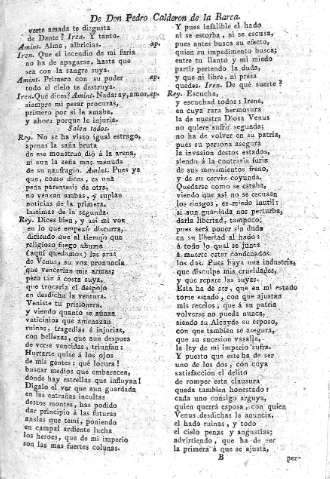 De Don Pedro Calderon de la Barca.
verte amada te disgusta
de Dante? Iren. Y tanto.
Amint. Alma, albricias. ap.
Iren. Que el incendio de mi furia
no ha de apagarse, hasta que
sea con la sangre suya.
Amint. Primero con su poder ap.
todo el cielo te destruya.
Iren. Qué dices? Amint. Nada: ay, amor, ap.
siempre mi pesar procuras,
primero por si le amaba,
y ahora porque le injuria.
Salen todos.
Rey. No se ha visto igual estrago,
apenas la saña bruta
de ese monstruo dió á la arena,
ni aun la seña mas menuda
de su naufragio. Amint. Pues ya
que, como dices, es una
para parentesis de otra,
no venzan ambas, y suplan
noticias de la primera,
lastimas de la segunda.
Rey. Dices bien; y así mi voz
en lo que empezó discurra,
diciendo que el tiempo que
religioso fuego ahuma
(aquí quedamos) las aras
de Venus, su voz pronuncia
que vencerian mis armas;
pero tan á costa suya,
que trocaria el despecho
en desdicha la ventura.
Venisteis prisioneras,
y viendo quanto se aunan
vaticinios que amenazan
ruinas, tragedias é injurias,
con bellezas, que aun despues
de verse vencidas, triunfan:
Hurtarte quise á los ojos
de mis gentes; qué locura!
buscar medios que embaracen,
donde hay estrellas que influyan!
Digalo el ver que aun guardada
en las entrañas incultas
destos montes, has podido
dar principio á las futuras
ansias que temí, poniendo
en campal ardiente lucha
los heroes, que de mi imperio
son mas fuertes colunas.
Y pues infalible el hado
ni se estorba, ni se escusa,
pues antes busca su efecto,
quien su impedimento busca;
entre tu llanto y mi miedo
partir pretendo la duda,
y que ni libre, ni presa
quedes. Iren. De qué suerte?
Rey. Escucha,
y escuchad todos: Irene,
en cuya rara hermosura
la de nuestra Diosa Venus
no quiere sufrir segundas;
no ha de volver en su patria,
pues su persona asegura
la invasion destos estados,
siendo á la contraria furia
de sus movimientos freno,
y de su cerviz coyunda.
Quedarse como se estaba,
viendo que así no se escusan
los riesgos, es miedo inutil:
si aun guardada nos perturba,
darla libertad, tampoco;
pues será poner sin duda
en su libertad al hado:
á todo lo qual se junta
á muerte estar condenados
los dos. Pues haya una industria,
que disculpe mis crueldades,
y que repare las suyas.
Esta ha de ser, que en mi estado
tome estado, con que ajustan
mis recelos, que á su patria
volverse no pueda nunca,
siendo su Alcayde su esposo,
con que tambien se asegura,
que su sucesion vasalla,
la ley de mi imperio sufra.
Y puesto que esta ha de ser
uno de los dos, con cuya
satisfaccion el delito
de romper esta clausura
queda tambien honestado:
cada uno consigo arguya,
quien querrá esposa, con quien
Venus desdichas le anuncia,
el hado ruinas, y todo
el cielo penas y angustias;
advirtiendo, que ha de ser
la primera á que se ajusta,
B
per-